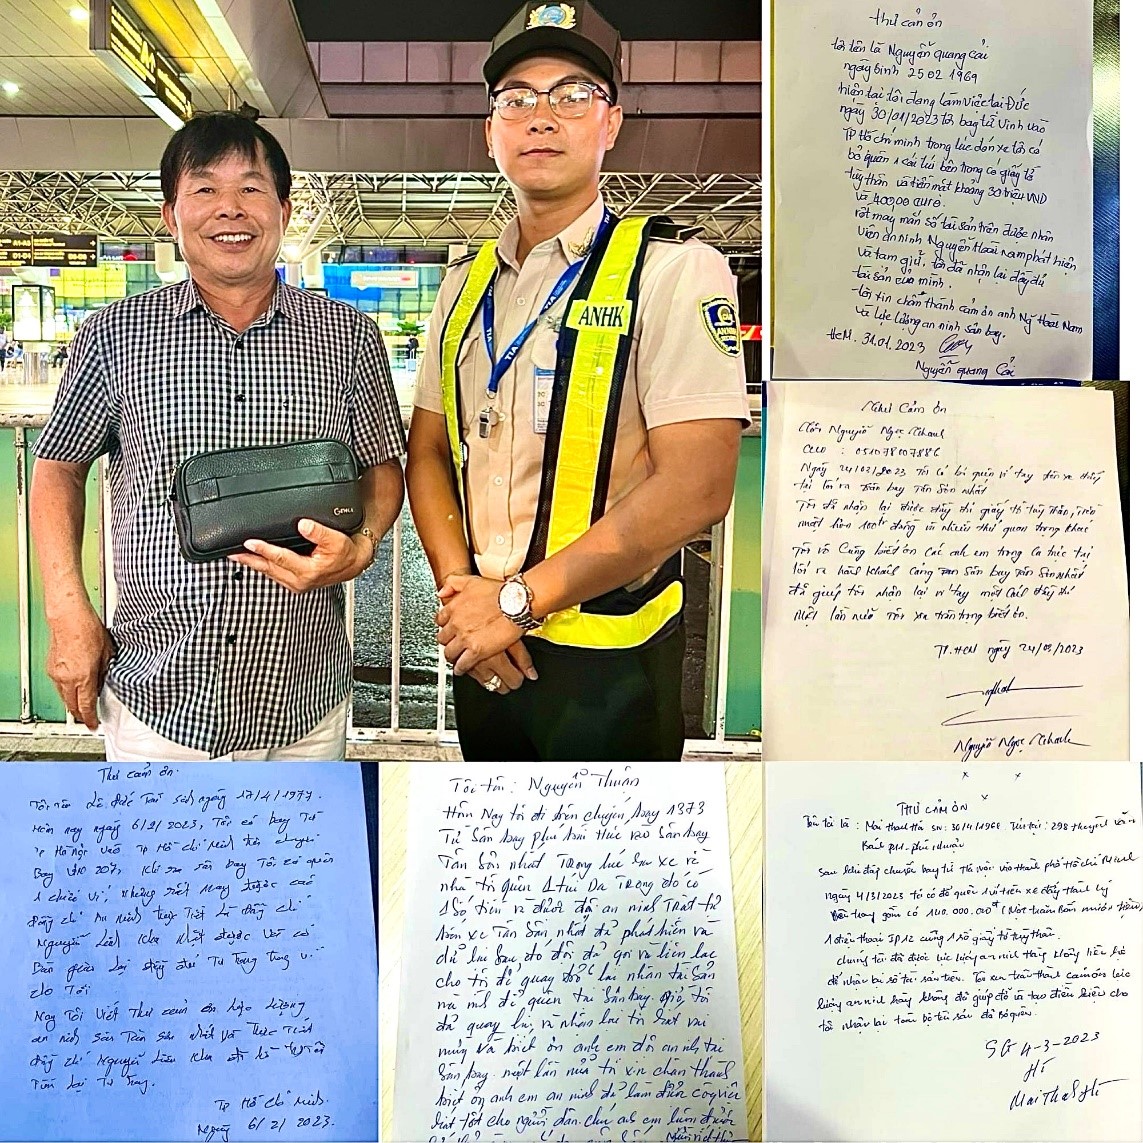 ANHK
TIA
GENCE
Thư cảm ơn
tôi tên là Nguyễn quang cải
ngày sinh 25 02 1969
hiện tại tôi đang làm việc tại Đức
ngày 30/01/2023 tôi bay từ Vinh vào
TP Hồ chí minh trong lúc đón xe tôi có
bỏ quên 1 cái túi bên trong có giấy tờ
tùy thân và tiền mặt khoảng 30 triệu VND
và 400,00 euro.
rất may mắn số tài sản trên được nhân
viên an ninh Nguyễn Hoài nam phát hiện
và tạm giữ. tôi đã nhận lại đầy đủ
tài sản của mình.
tôi xin chân thành cảm ơn anh Ng Hoài Nam
và lực lượng an ninh sân bay.
HCM. 31.01.2023
Nguyễn quang Cải
Thư Cảm ơn
Tôi Nguyễn Ngọc Khanh
CCCD : 051078007886
Ngày 24/03/2023 Tôi có bỏ quên ví tay trên xe đẩy
tại lối ra sân bay Tân Sơn nhất
Tôi đã nhận lại được đầy đủ giấy tờ tuỳ thân, tiền
mặt hơn 100tr đồng và nhiều thứ quan trọng khác
Tôi vô Cùng biết ơn Các anh em trong Ca trực tại
lối ra hành khách Cảng Tân Sân bay Tân Sơn Nhất
đã giúp tôi nhận lại ví tay một Cách đầy đủ
Một lần nữa Tôi xin trân trọng biết ơn.
TP. HCM ngày 24/03/2023
Nguyễn Ngọc Khanh
Thư cảm ơn.
Tôi tên Lê Đức Tài sinh ngày 17/4/1977.
Hôm nay ngày 6/2/2023, Tôi có bay Từ
Tp Hà Nội vào Tp Hồ Chí Minh trên chuyến
Bay 207, Khi ra sân bay Tôi có quên
1 chiếc ví, nhưng rất may được các
đồng chí An ninh trực Tiếp là đồng chí
Nguyễn Liên Kha nhặt được và có
Bàn giao lại đầy đủ Tư Trang trong ví
cho Tôi
Nay Tôi Viết Thư cảm ơn lực lượng
an ninh sân Tân sơn nhất và Trực Tiếp
đồng chí Nguyễn Liên Kha đã
Tìm lại Tư Trang.
Tp Hồ Chí Minh.
Ngày 6/2/2023.
Tôi tên: Nguyễn Thuận
Hôm Nay tôi đi trên chuyến bay 1373
Từ Sân bay phú bài Huế vào Sân bay
Tân Sơn nhất trong lúc lên xe về
nhà tôi quên 1 túi Da Trong đó có
1 Số tiền và được đội an ninh Trật tự
bến xe Tân Sơn nhất đã phát hiện và
giữ lại sau đó đội đã gọi và liên lạc
cho tôi để quay trở lại nhận tài sản
mà mình để quên tại Sân bay. tôi
đã quay lại và nhận lại tôi rất vui
mừng và biết ơn anh em đội an ninh tại
Sân bay. một lần nữa tôi xin chân thành
biết ơn anh em an ninh đã làm được công việc
rất tốt cho người dân. chúc anh em luôn được
THƯ CẢM ƠN
Tôi tên là : Mai thanh Hà SN: 30/4/1968 . 298 thuyết
P11 - phú nhuận
Sau khi đáp chuyến bay từ Hà nội vào thành phố Hồ Chí Minh
Ngày 4/3/2023 tôi có để quên 1 ví trên xe đẩy hành lý
Bên trong gồm có 140.000.000đ (Một trăm Bốn mươi triệu)
1 điện thoại IP12 cùng 1 số giấy tờ tuỳ thân.
chúng tôi đã được lực lượng an ninh Hàng không liên hệ
để nhận lại số tài sản trên. Tôi xin trân thành cảm ơn các lực
lượng an ninh hàng không đã giúp đỡ và tạo điều kiện cho
tôi nhận lại toàn bộ tài sản đã bỏ quên.
SG 4-3-2023
Hà
Mai Thanh Hà